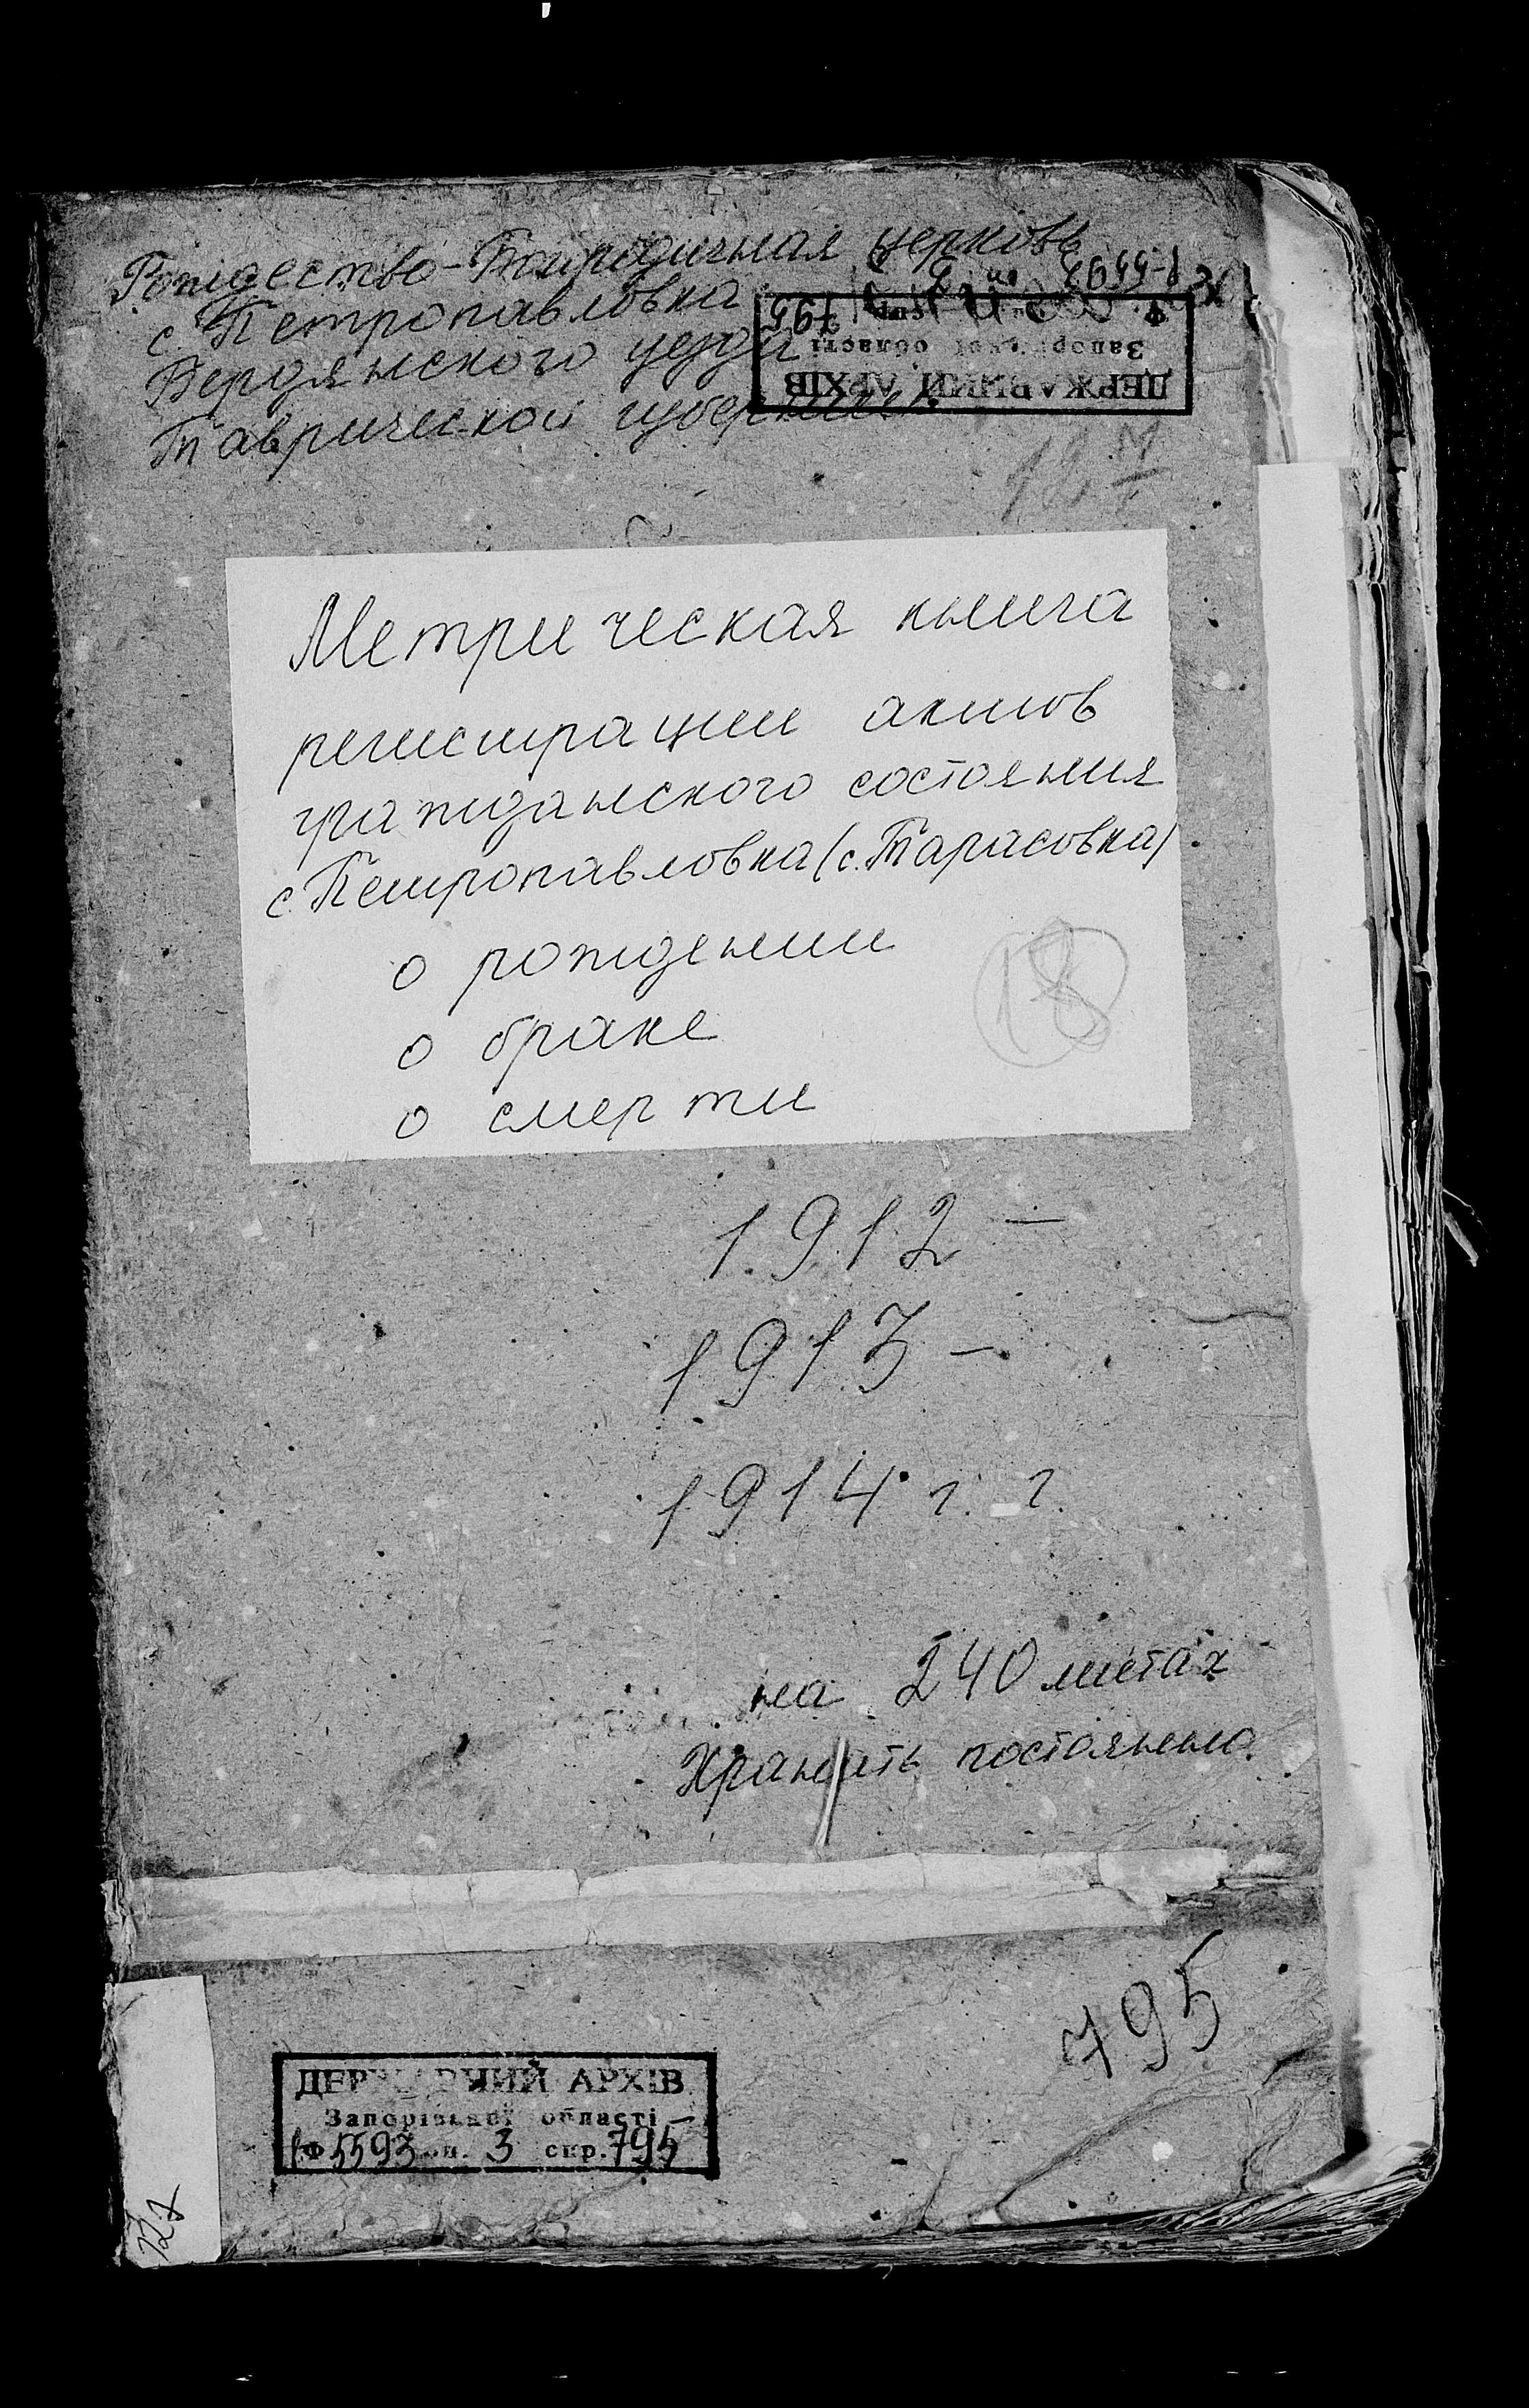 Рождество-Богородичная церковь
с. Петропавловка
Бердянского уезда
Таврической губернии
Р-5593 оп 3
спр. 795
ДЕРЖАВНИЙ АРХІВ
Запорізької області
12 М
Метрическая книга
регистрации актов
гражданского состояния
с. Петропавловка (с. Тарасовка)
о рождении
о браке
о смерти
18
1912 –
1913 –
1914 г. г.
на 240 листах
Хранить постоянно.
795
ДЕРЖАВНИЙ АРХІВ
Запорізької області
Ф 5593 оп. 3 спр. 795
127